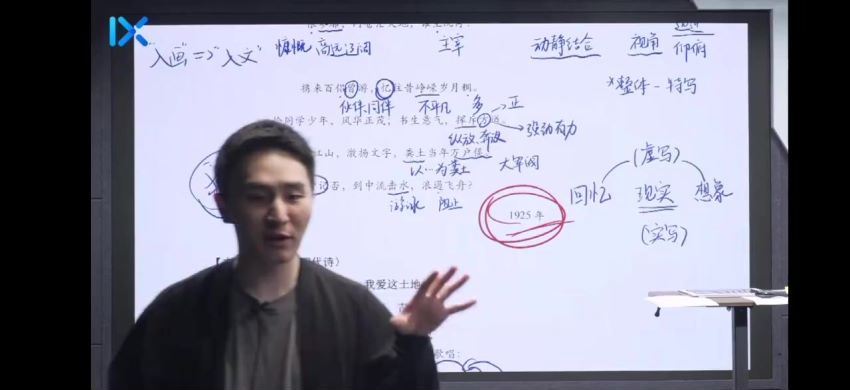 "入画"=>"入文" 慷慨 高远辽阔 主宰 动静结合 视角 仰俯
携来百侣曾游,忆往昔峥嵘岁月稠。 *整体-特写
伙伴,同伴 不平凡 多 正
恰同学少年,风华正茂,书生意气,挥斥方遒。 强劲有力
纵放,奔放
江山,激扬文字,粪土当年万户侯。 大军阀 (虚写)
以…为粪土
记否,到中流击水,浪遏飞舟? 回忆 现实 想象
游泳 阻止 1925 年 (实写)
代诗)
我爱这土地
歌唱: